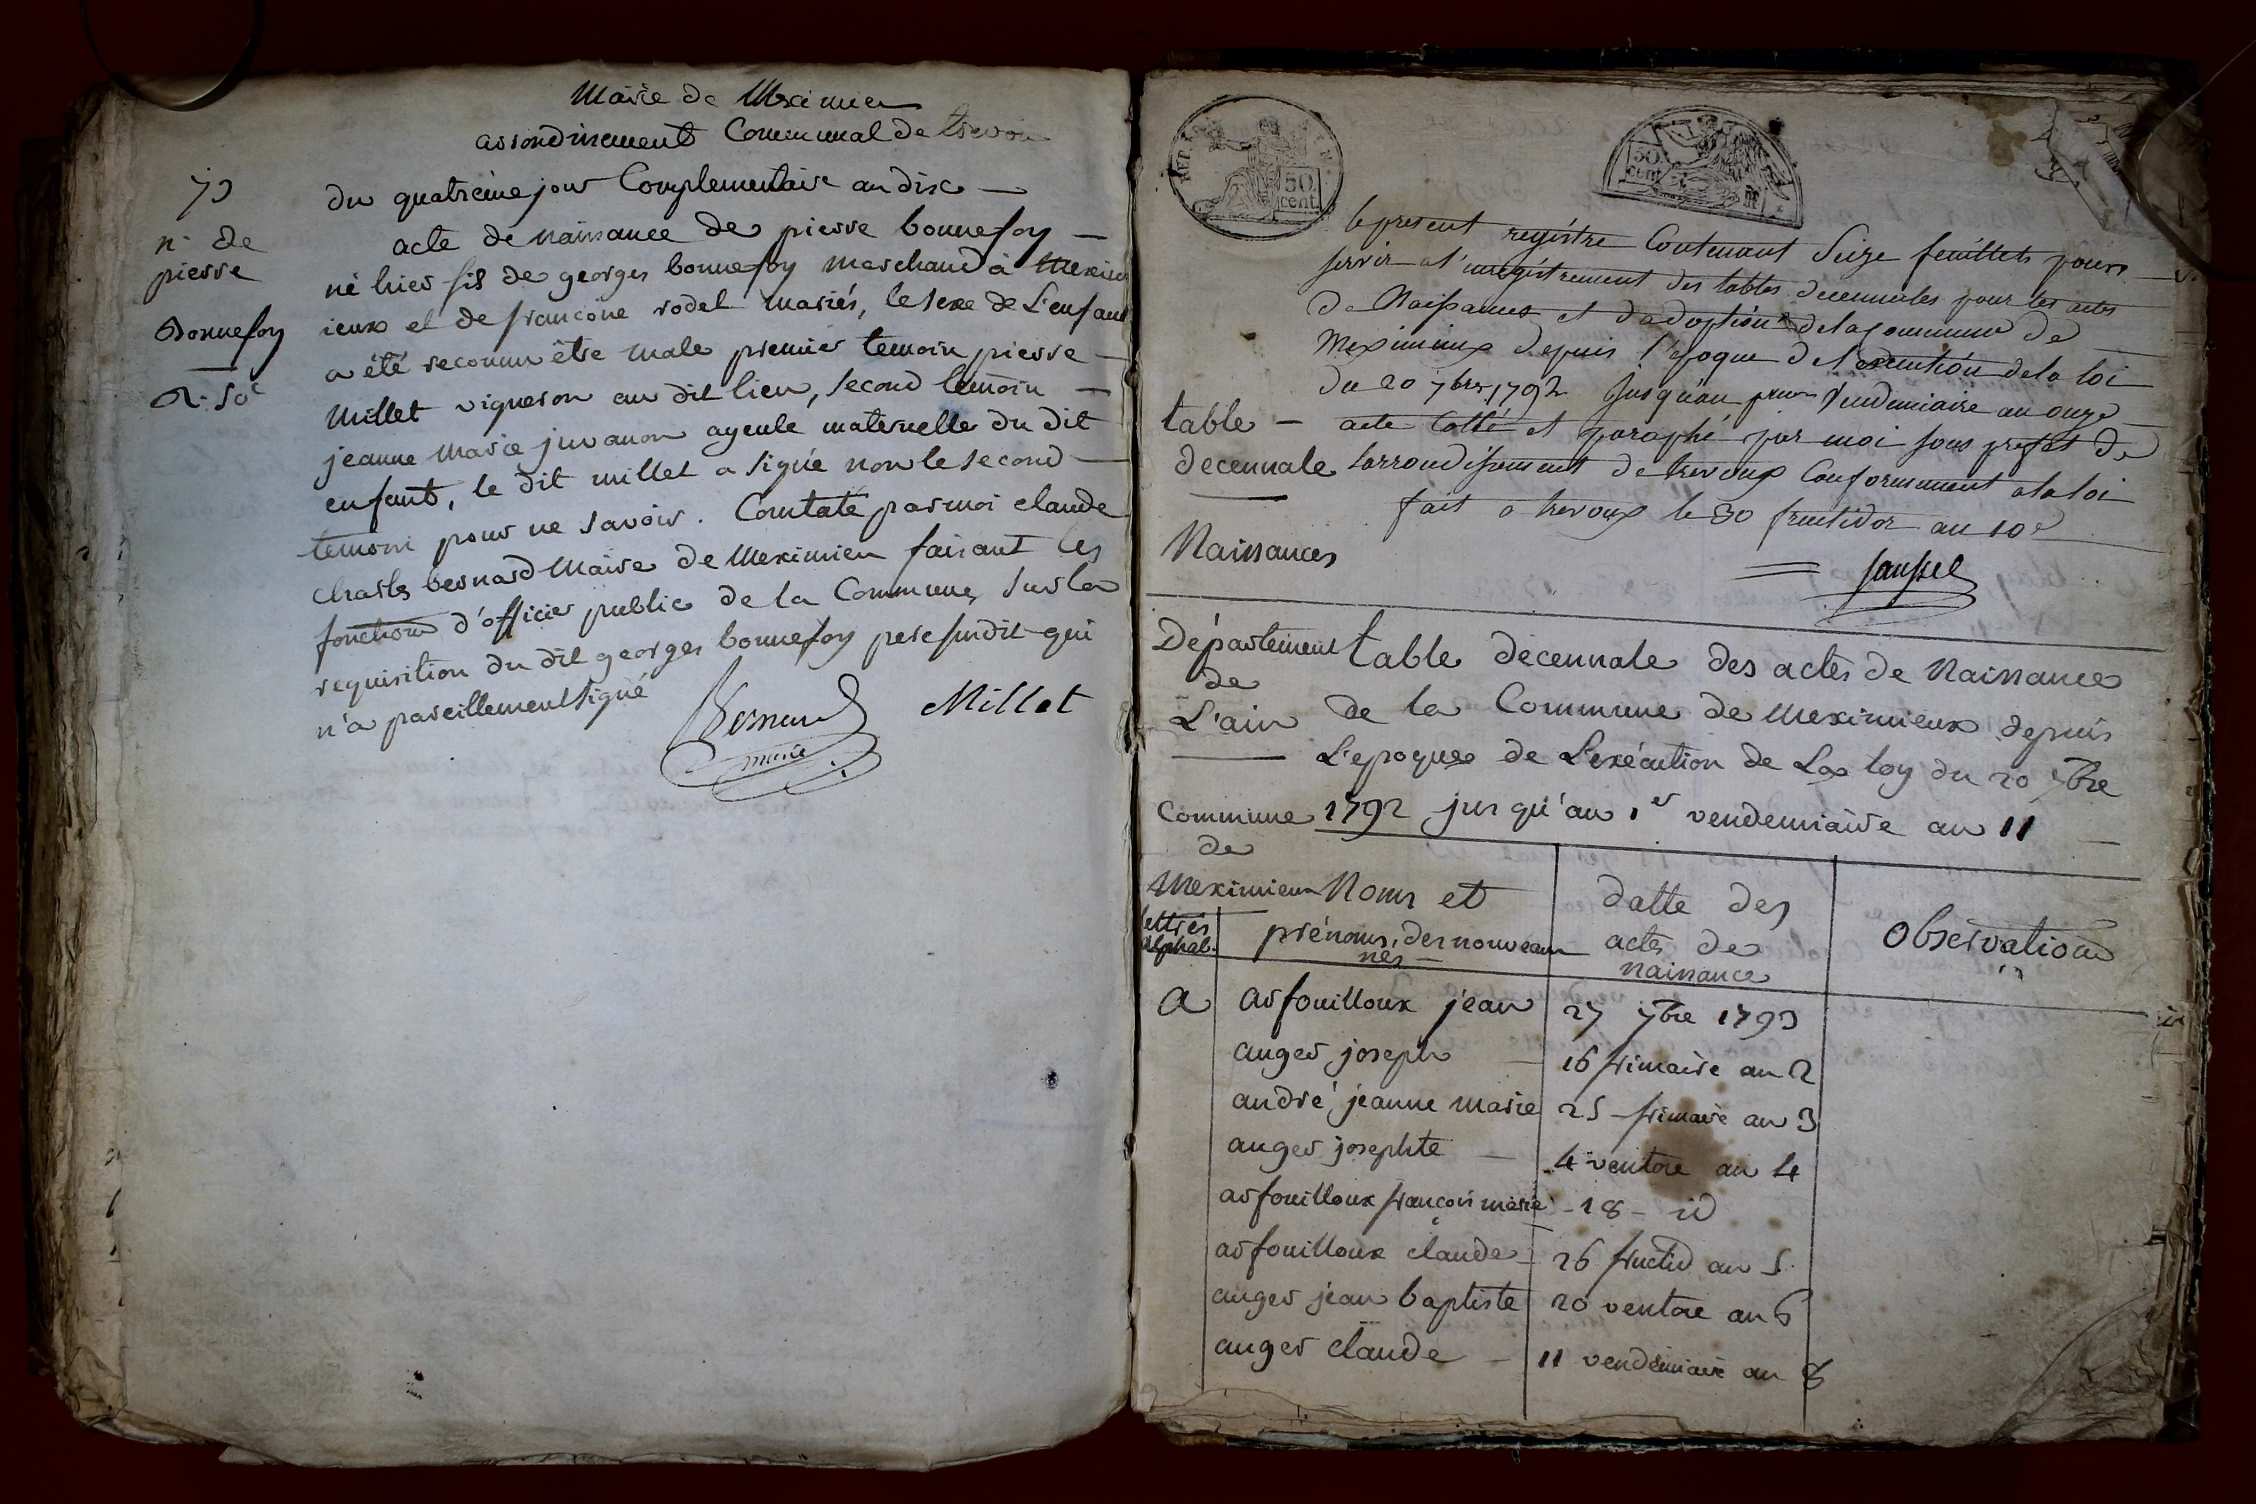 Mairie de Meximieu
arrondissement Communal de trevou
73
n. de
pierre
Bonnefoy
du quatrieme jour Complementaire an dix —
acte de naissance de pierre bonnefoy —
né hier fils de georges bonnefoy marchand à Mexim
ieux et de francoise rodet mariés, le sexe de L'enfant
a été reconnu être male premier temoin pierre —
Millet vigneron au dit lieu, second temoin —
jeanne marie juvanon ayeule maternelle du dit
enfant, le dit millet a signé non le second —
temoin pour ne savoir. Constaté par moi claude
charles bernard Maire de Meximieu faisant les
fonctions d'officier public de la Commune, sur la
requisition du dit georges bonnefoy pere susdit qui
n'a pareillement signé
Bernard
maire
Millet
50 cent.
50 cent.
le present registre Contenant Seize feuillets pour
servir a l'enregistrement des tables decennales pour les actes
de Naissances et d'adoption de la Commune de
Meximieux depuis l'epoque de l'execution de la loi
du 20 7bre 1792 jusqu'au premier Vendemiaire an onze
a eté Cotté et paraphé par moi sous prefet de
l'arrondissement de trevoux Conformement a la loi
fait a trevoux le 30 fructidor an 10e
table —
decennale
Naissances
Département
de
L'ain
Commune
de
Meximieux
table decennale des actes de Naissance
de la Commune de Meximieux depuis
L'epoque de L'exécution de La loy du 20 7bre
1792 jusqu'au 1er vendemiaire an 11
lettres
alphab.
Noms et
prénoms, des nouveau
nés —
datte des
actes de
naissance
Observations
a arfouilloux jean 27 7bre 1793
auger joseph — 16 frimaire an 2
andré jeanne marie 25 frimaire an 3
auger josephte — 4 ventose an 4
arfouilloux françois marie - 18 - id
arfouilloux claude - 26 fructid an 5
auger jean baptiste 20 ventose an 6
auger claude — 11 vendémiaire an 8